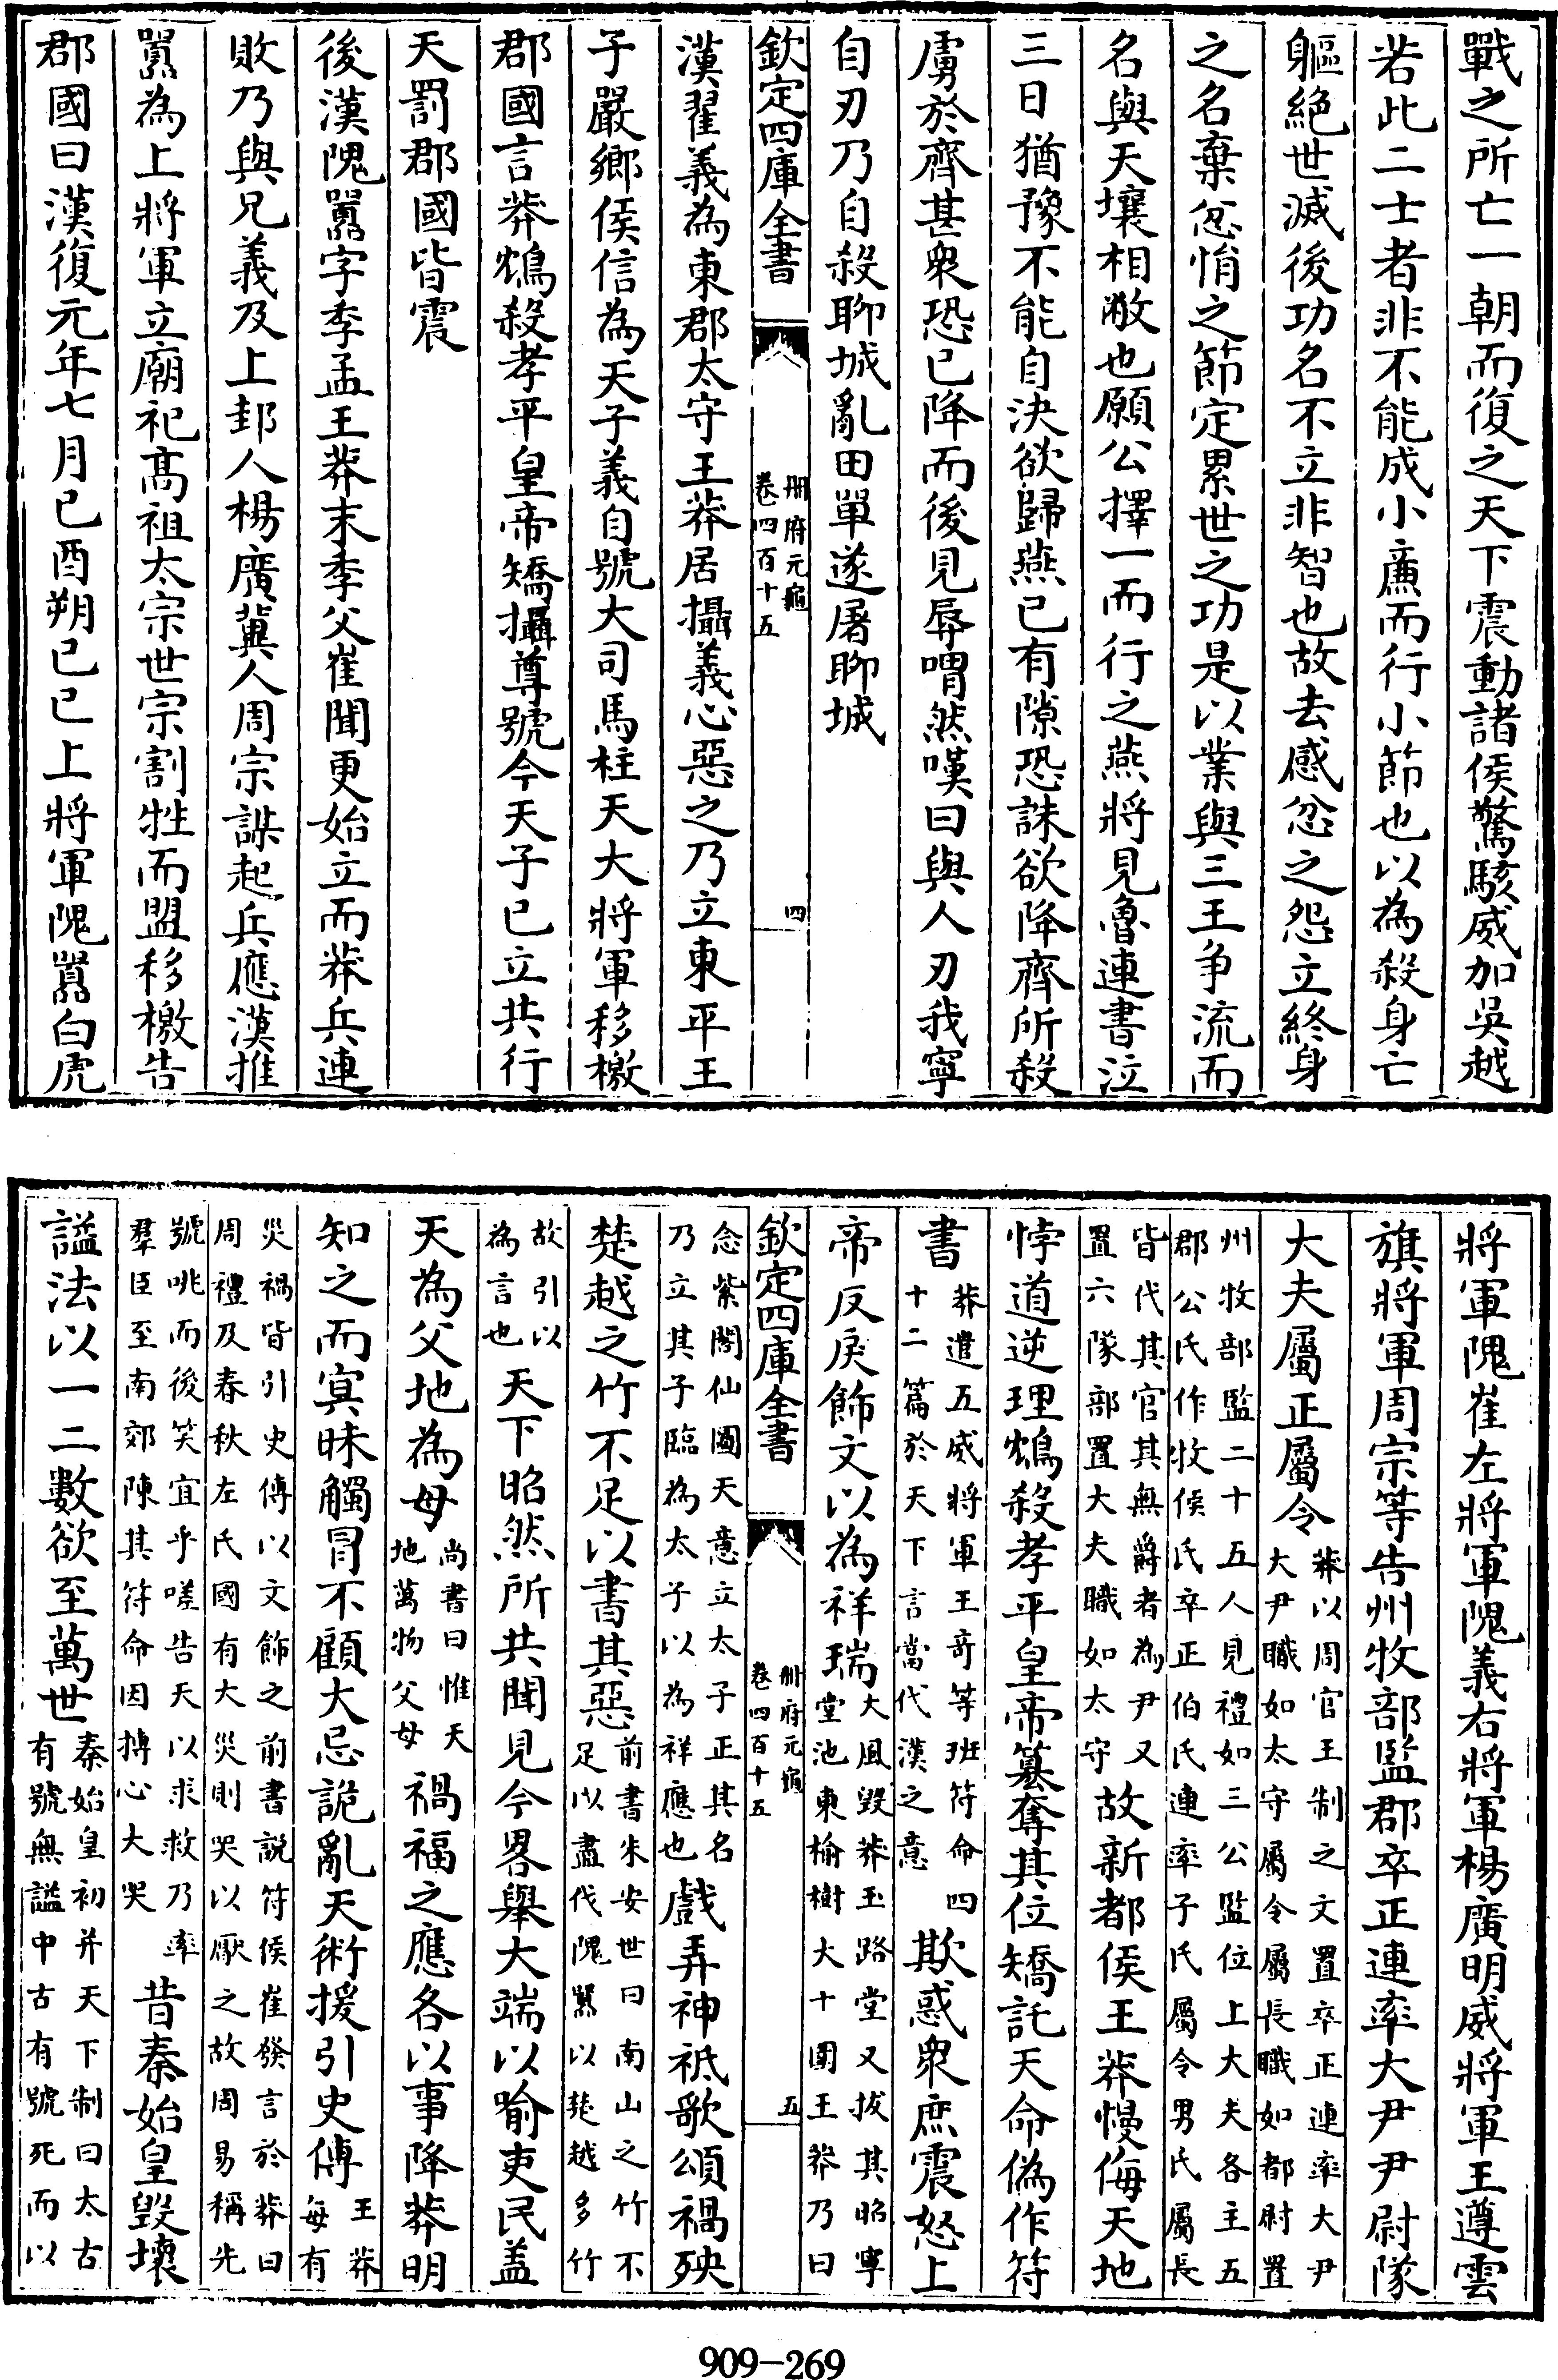 戰之所亡一朝而復之天下震動諸侯驚駭威加吳越
若此二士者非不能成小廉而行小節也以為殺身亡
軀絶世滅後功名不立非智也故去感忿之怨立終身
之名棄忿悁之節定累世之功是以業與三王争流而
名與天壤相敝也願公擇一而行之燕將見魯連書泣
三日猶豫不能自決欲歸燕已有隙恐誅欲降齊所殺
虜於齊甚衆恐已降而後見辱喟然嘆曰與人刃我寧
自刃乃自殺聊城亂田單遂屠聊城
欽定四庫全書
冊府元龜
卷四百十五
四
漢翟義為東郡太守王莽居攝義心惡之乃立東平王
子嚴鄉侯信為天子義自號大司馬柱天大將軍移檄
郡國言莽鴆殺孝平皇帝矯攝尊號今天子已立共行
天罰郡國皆震
後漢隗囂字季孟王莽末季父崔聞更始立而莽兵連
敗乃與兄義及上邽人楊廣冀人周宗謀起兵應漢推
囂為上將軍立廟祀髙祖太宗世宗割牲而盟移檄告
郡國曰漢復元年七月已酉朔已巳上將軍隗囂白虎
將軍隗崔左將軍隗義右將軍楊廣明威將軍王遵雲
旗將軍周宗等告州牧部監郡卒正連率大尹尹尉隊
大夫屬正屬令
莽以周官王制之文置卒正連率大尹
大尹職如太守屬令屬長職如都尉置
州牧部監二十五人見禮如三公監位上大夫各主五
郡公氏作牧侯氏卒正伯氏連率子氏屬令男氏屬長
皆代其官其無爵者為尹又
置六隊部置大夫職如太守
故新都侯王莽慢侮天地
悖道逆理鴆殺孝平皇帝簒奪其位矯託天命偽作符
書
莽遣五威將軍王竒等班符命四
十二篇於天下言當代漢之意
欺惑衆庶震怒上
帝反戾飾文以為祥瑞
大風毀莽玉路堂又拔其昭寧
堂池東榆樹大十圍王莽乃曰
欽定四庫全書
冊府元龜
卷四百十五
五
念紫閣仙圖天意立太子正其名
乃立其子臨為太子以為祥應也
戲弄神祗歌頌禍殃
楚越之竹不足以書其惡
前書朱安世曰南山之竹不
足以盡代隗囂以楚越多竹
故引以
為言也
天下昭然所共聞見今畧舉大端以喻吏民盖
天為父地為母
尚書曰惟天
地萬物父母
禍福之應各以事降莽明
知之而㝠昧觸冐不顧大忌詭亂天術援引史傳
王莽
毎有
災禍皆引史傳以文飾之前書説符侯崔發言於莽曰
周禮及春秋左氏國有大災則哭以厭之故周易稱先
號咷而後笑宜乎嗟告天以求救乃率
羣臣至南郊陳其符命因搏心大哭
昔秦始皇毀壞
諡法以一二數欲至萬世
秦始皇初并天下制曰太古
有號無諡中古有號死而以
909-269